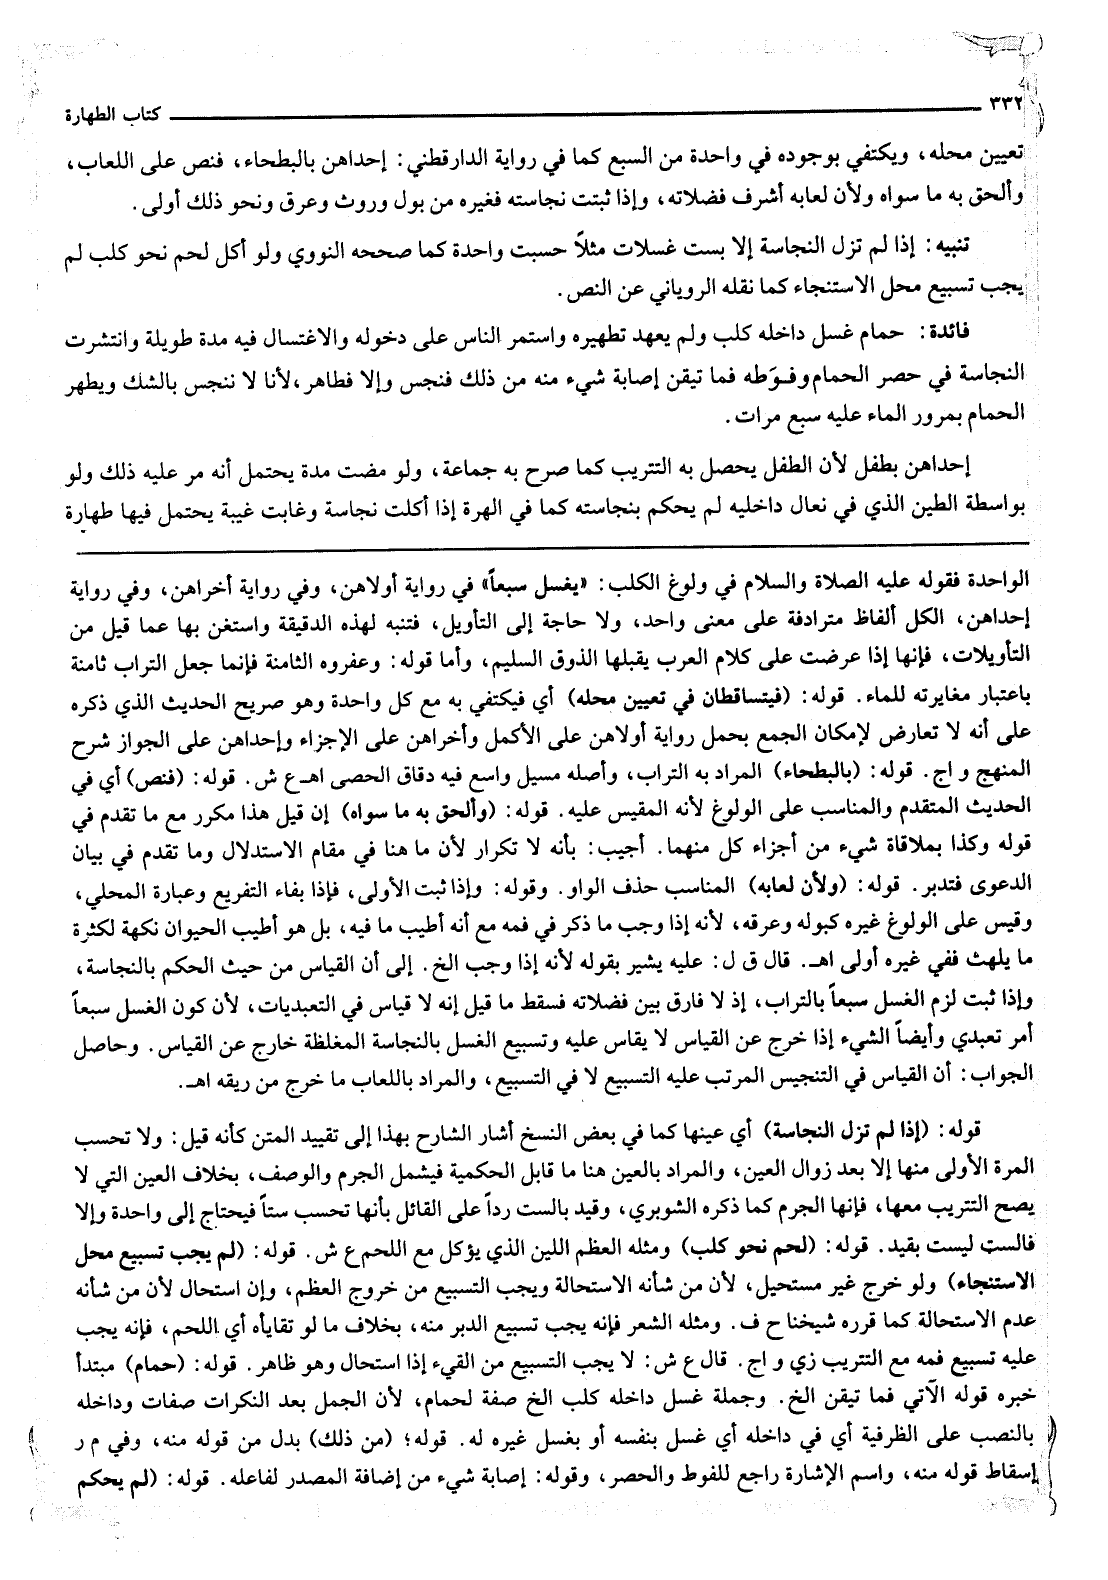 ٣٣٢ كتاب الطهارة
تعيين محله، ويكتفي بوجوده في واحدة من السبع كما في رواية الدارقطني: إحداهن بالبطحاء، فنص على اللعاب،
وألحق به ما سواه ولأن لعابه أشرف فضلاته، وإذا ثبتت نجاسته فغيره من بول وروث وعرق ونحو ذلك أولى.
تنبيه: إذا لم تزل النجاسة إلا بست غسلات مثلاً حسبت واحدة كما صححه النووي ولو أكل لحم نحو كلب لم
يجب تسبيع محل الاستنجاء كما نقله الروياني عن النص.
فائدة: حمام غسل داخله كلب ولم يعهد تطهيره واستمر الناس على دخوله والاغتسال فيه مدة طويلة وانتشرت
النجاسة في حصر الحمام وفوَطه فما تيقن إصابة شيء منه من ذلك فنجس وإلا فطاهر، لأنا لا ننجس بالشك ويطهر
الحمام بمرور الماء عليه سبع مرات.
إحداهن بطفل لأن الطفل يحصل به التتريب كما صرح به جماعة، ولو مضت مدة يحتمل أنه مر عليه ذلك ولو
بواسطة الطين الذي في نعال داخليه لم يحكم بنجاسته كما في الهرة إذا أكلت نجاسة وغابت غيبة يحتمل فيها طهارة
الواحدة فقوله عليه الصلاة والسلام في ولوغ الكلب: «يغسل سبعاً» في رواية أولاهن، وفي رواية أخراهن، وفي رواية
إحداهن، الكل ألفاظ مترادفة على معنى واحد، ولا حاجة إلى التأويل، فتنبه لهذه الدقيقة واستغن بها عما قيل من
التأويلات، فإنها إذا عرضت على كلام العرب يقبلها الذوق السليم، وأما قوله: وعفروه الثامنة فإنما جعل التراب ثامنة
باعتبار مغايرته للماء. قوله: (فيتساقطان في تعيين محله) أي فيكتفي به مع كل واحدة وهو صريح الحديث الذي ذكره
على أنه لا تعارض لإمكان الجمع بحمل رواية أولاهن على الأكمل وأخراهن على الإجزاء وإحداهن على الجواز شرح
المنهج و اج. قوله: (بالبطحاء) المراد به التراب، وأصله مسيل واسع فيه دقاق الحصى اهـ ع ش. قوله: (فنص) أي في
الحديث المتقدم والمناسب على الولوغ لأنه المقيس عليه. قوله: (وألحق به ما سواه) إن قيل هذا مكرر مع ما تقدم في
قوله وكذا بملاقاة شيء من أجزاء كل منهما. أجيب: بأنه لا تكرار لأن ما هنا في مقام الاستدلال وما تقدم في بيان
الدعوى فتدبر. قوله: (ولأن لعابه) المناسب حذف الواو. وقوله: وإذا ثبت الأولى، فإذا بفاء التفريع وعبارة المحلي،
وقيس على الولوغ غيره كبوله وعرقه، لأنه إذا وجب ما ذكر في فمه مع أنه أطيب ما فيه، بل هو أطيب الحيوان نكهة لكثرة
ما يلهث ففي غيره أولى اهـ. قال ق ل: عليه يشير بقوله لأنه إذا وجب الخ. إلى أن القياس من حيث الحكم بالنجاسة،
وإذا ثبت لزم الغسل سبعاً بالتراب، إذ لا فارق بين فضلاته فسقط ما قيل إنه لا قياس في التعبديات، لأن كون الغسل سبعاً
أمر تعبدي وأيضاً الشيء إذا خرج عن القياس لا يقاس عليه وتسبيع الغسل بالنجاسة المغلظة خارج عن القياس. وحاصل
الجواب: أن القياس في التنجيس المرتب عليه التسبيع لا في التسبيع، والمراد باللعاب ما خرج من ريقه اهـ.
قوله: (إذا لم تزل النجاسة) أي عينها كما في بعض النسخ أشار الشارح بهذا إلى تقييد المتن كأنه قيل: ولا تحسب
المرة الأولى منها إلا بعد زوال العين، والمراد بالعين هنا ما قابل الحكمية فيشمل الجرم والوصف، بخلاف العين التي لا
يصح التتريب معها، فإنها الجرم كما ذكره الشوبري، وقيد بالست رداً على القائل بأنها تحسب ستاً فيحتاج إلى واحدة وإلا
فالست ليست بقيد. قوله: (لحم نحو كلب) ومثله العظم اللين الذي يؤكل مع اللحم ع ش. قوله: (لم يجب تسبيع محل
الاستنجاء) ولو خرج غير مستحيل، لأن من شأنه الاستحالة ويجب التسبيع من خروج العظم، وإن استحال لأن من شأنه
عدم الاستحالة كما قرره شيخنا ح ف. ومثله الشعر فإنه يجب تسبيع الدبر منه، بخلاف ما لو تقايأه أي اللحم، فإنه يجب
عليه تسبيع فمه مع التتريب زي و اج. قال ع ش: لا يجب التسبيع من القيء إذا استحال وهو ظاهر. قوله: (حمام) مبتدأ
خبره قوله الآتي فما تيقن الخ. وجملة غسل داخله كلب الخ صفة لحمام، لأن الجمل بعد النكرات صفات وداخله
بالنصب على الظرفية أي في داخله أي غسل بنفسه أو بغسل غيره له. قوله؛ (من ذلك) بدل من قوله منه، وفي م ر
إسقاط قوله منه، واسم الإشارة راجع للفوط والحصر، وقوله: إصابة شيء من إضافة المصدر لفاعله. قوله: (لم يحكم